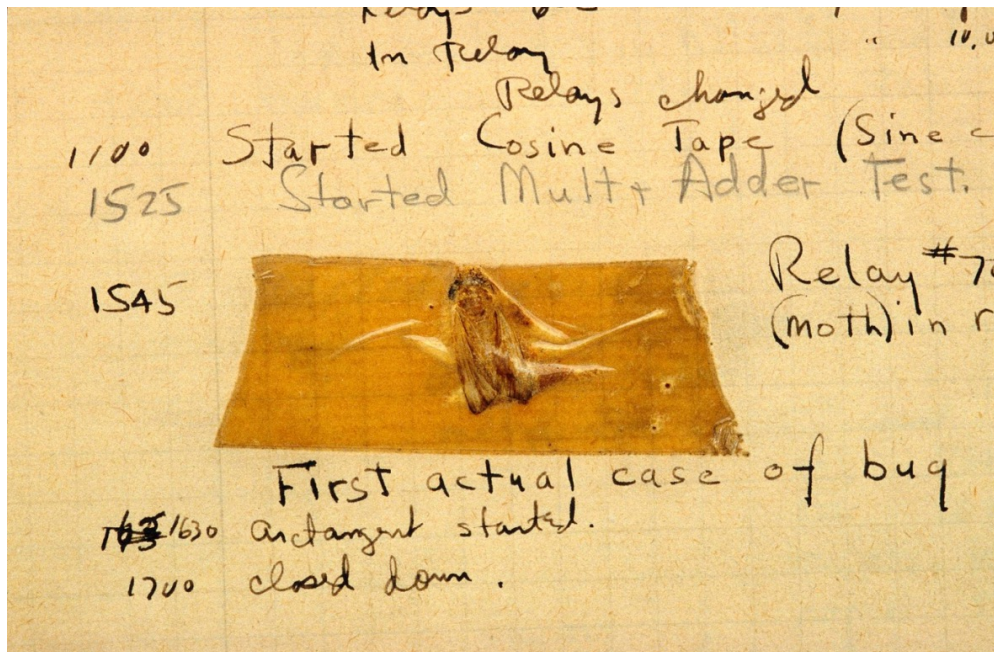 Relays
In Relay
Relays changed
1100 Started Cosine Tape (Sine
1525 Started Mult+ Adder Test.
1545 Relay #70
(moth) in r
First actual case of bug
1630 arctangent started.
1700 closed down.